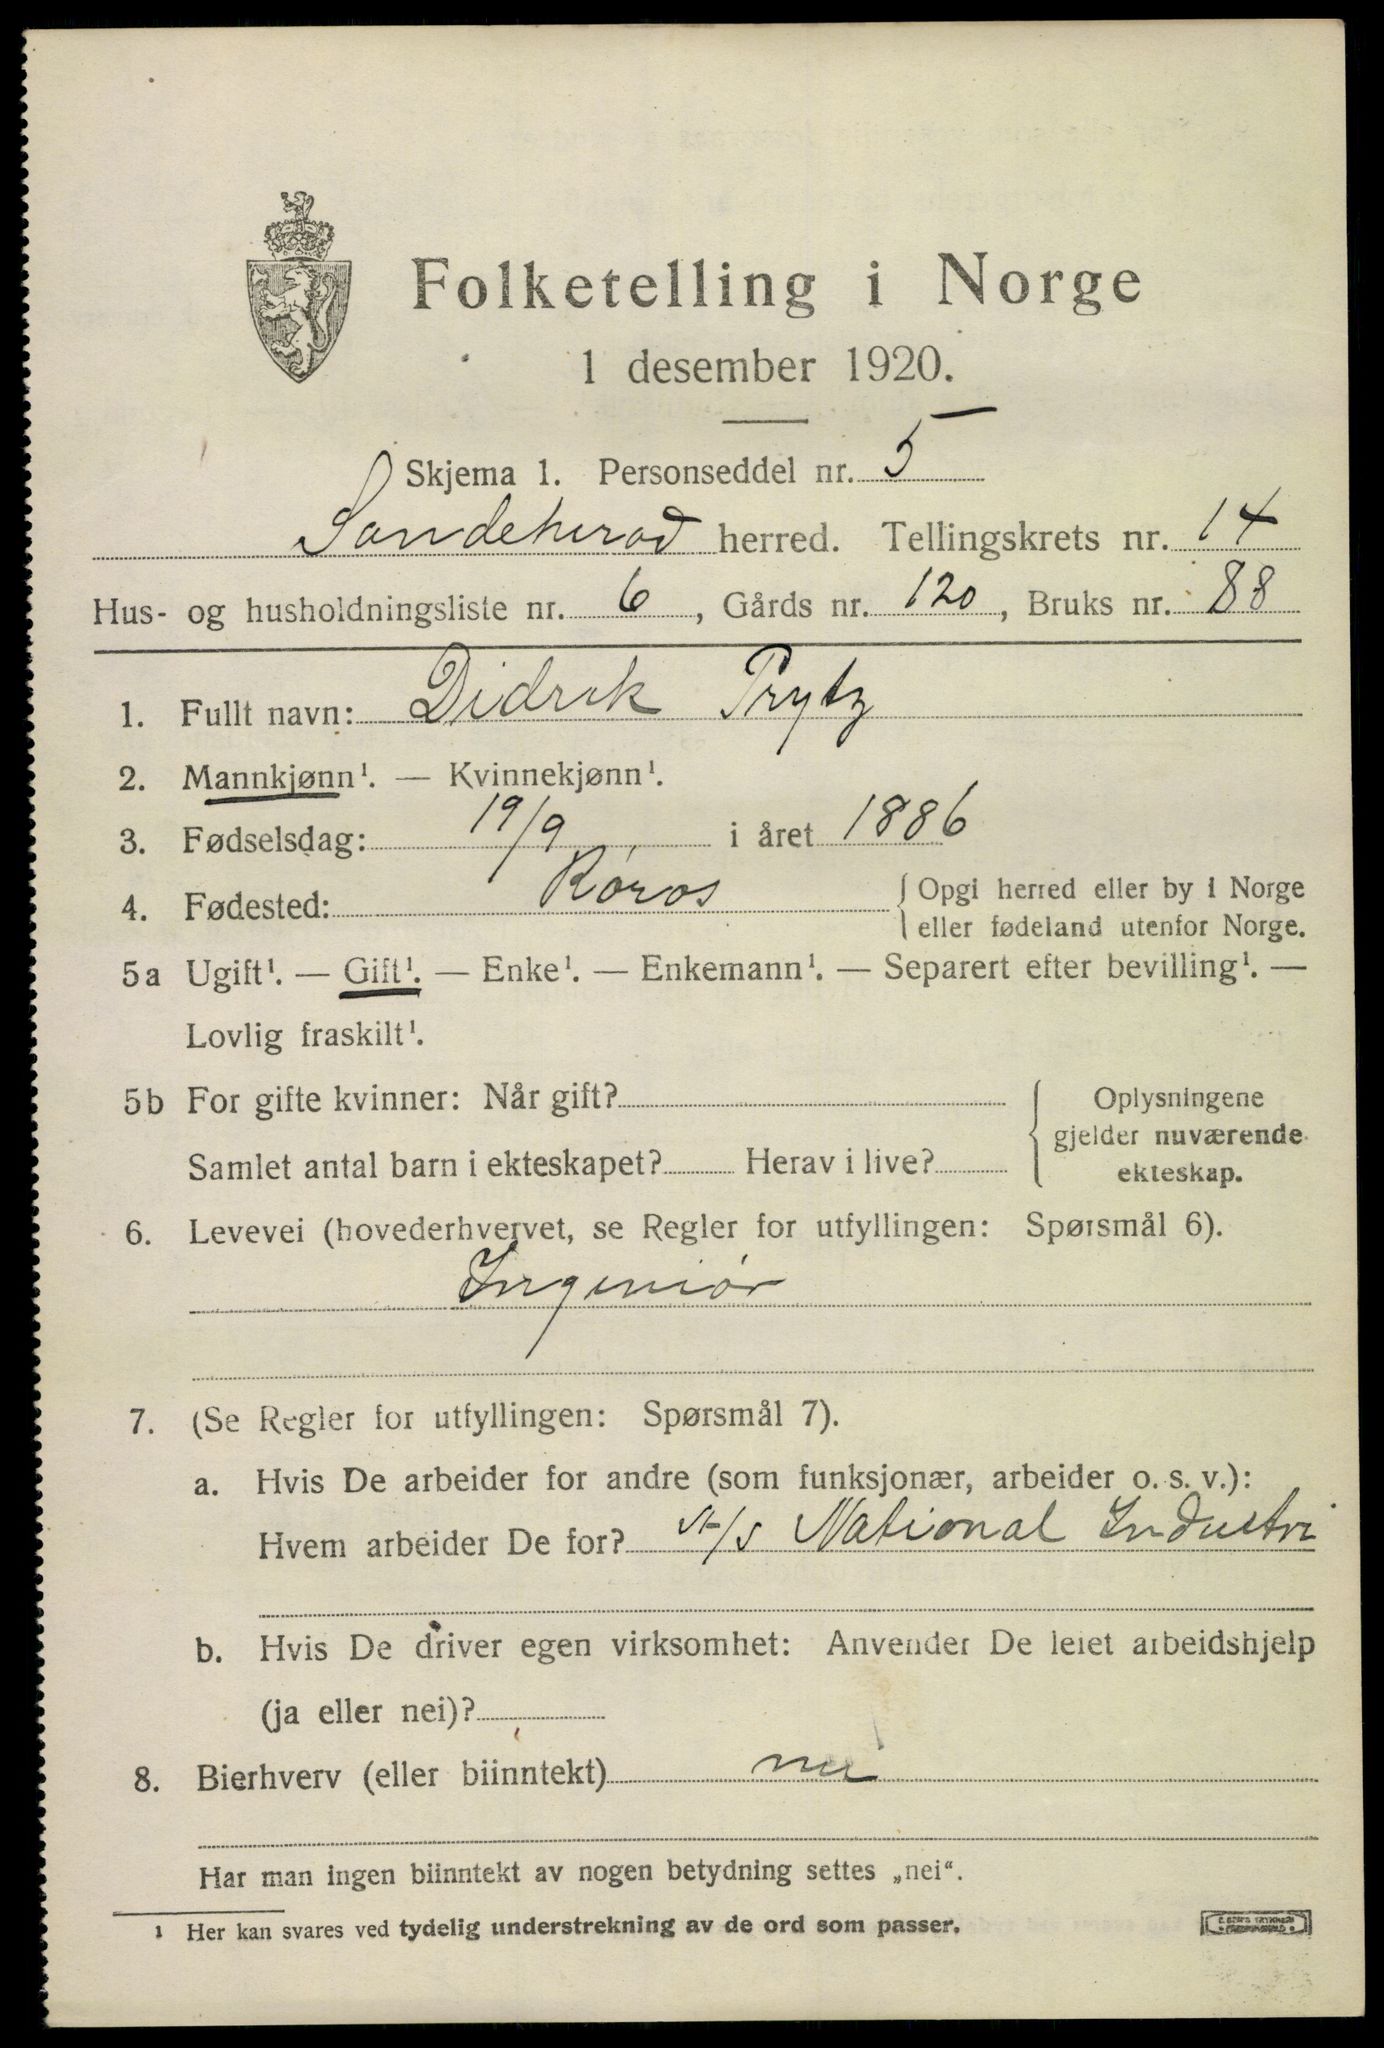 Folketelling i Norge
1 desember 1920.
Skjema 1. Personseddel nr. 5
Sandeherad herred. Tellingskrets nr. 14
Hus- og husholdningsliste nr. 6, Gårds nr. 120, Bruks nr. 88
1. Fullt navn: Didrik Prytz
2. Mannkjønn¹. — Kvinnekjønn¹.
3. Fødselsdag: 19/9 i året 1886
4. Fødested: Røros { Opgi herred eller by i Norge
eller fødeland utenfor Norge.
5a Ugift¹. — Gift¹. — Enke¹. — Enkemann¹. — Separert efter bevilling¹. —
Lovlig fraskilt¹.
5b For gifte kvinner: Når gift?
Samlet antal barn i ekteskapet? Herav i live?
{ Oplysningene
gjelder nuværende
ekteskap.
6. Levevei (hovederhvervet, se Regler for utfyllingen: Spørsmål 6).
Ingeniør
7. (Se Regler for utfyllingen: Spørsmål 7).
a. Hvis De arbeider for andre (som funksjonær, arbeider o. s. v.):
Hvem arbeider De for? A/S National Industri
b. Hvis De driver egen virksomhet: Anvender De leiet arbeidshjelp
(ja eller nei)?
8. Bierhverv (eller biinntekt) nei
Har man ingen biinntekt av nogen betydning settes „nei“.
¹ Her kan svares ved tydelig understrekning av de ord som passer.